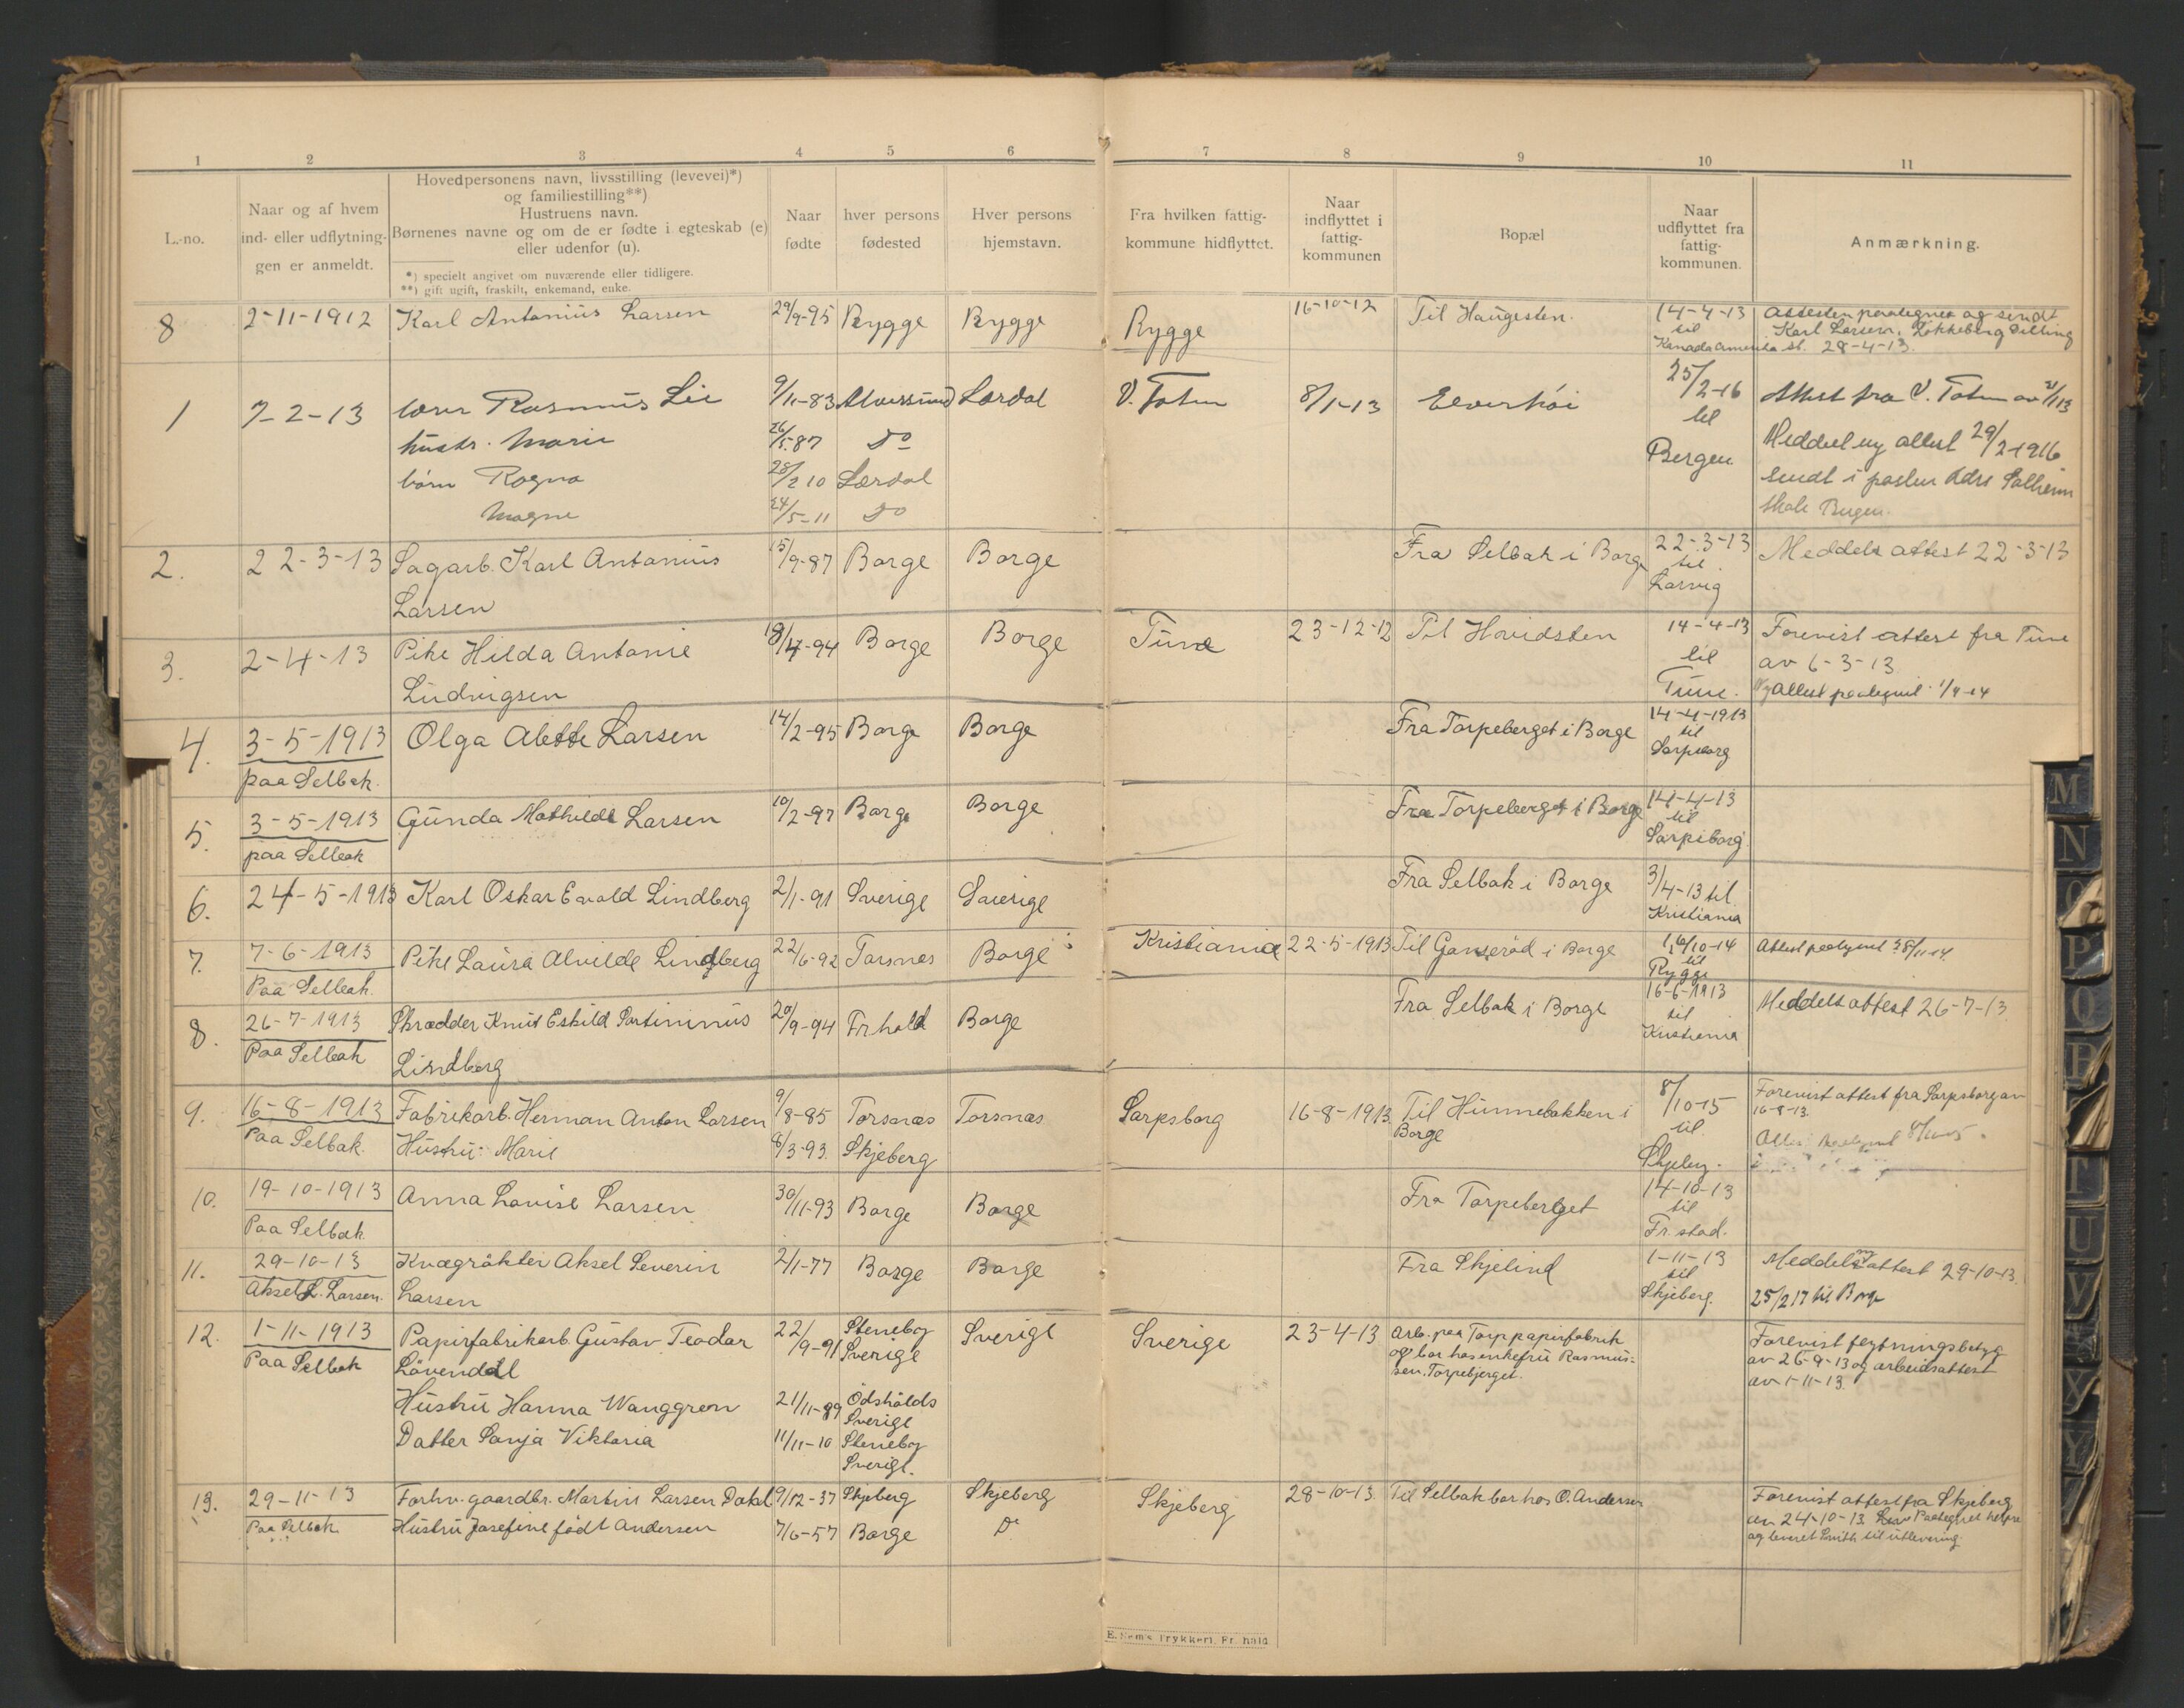 1 2 3 4 5 6 7 8 9 10 11
L.-no.
Naar og af hvem
ind- eller udflytnin-
gen er anmeldt.
Hovedpersonens navn, livsstilling (levevei)*)
og familiestilling**)
Hustruens navn.
Børnenes navne og om de er fødte i egteskab (e)
eller udenfor (u).
*) specielt angivet om nuværende eller tidligere.
**) gift ugift, fraskilt, enkemand, enke.
Naar
fødte
hver persons
fødested
Hver persons
hjemstavn.
Fra hvilken fattig-
kommune hidflyttet.
Naar
indflyttet i
fattig-
kommunen
Bopæl
Naar
udflyttet fra
fattig-
kommunen.
Anmærkning.
8 2-11-1912 Karl Antonius Larsen 29/9-95 Rygge Rygge Rygge 16-10-12 Til Haugesten. 14-4-13
til
Kanada Amerika
Attesten paategnet og sendt
Karl Larsen, Løkkeberg Dilling
st. 28-4-13.
1 7-2-13 lærer Rasmus Lie 9/11-83 Alversund Lærdal V. Toten 8/1-13 Elverhøi 25/2-16
til
Bergen
hustr. Marie 26/5.87 Do
børn Ragna 28/2 10 Lærdal
Magne 24/5-11 Do
Attest fra V. Toten av 21/1 13
Meddelt ny attest 29/2-1916
sendt i posten Adrs Solheim
skole Bergen.
2. 22-3-13 Sagarb. Karl Antonius
Larsen
15/9-87 Borge Borge Fra Selbak i Borge 22-3-13
til
Larvig
Meddelt attest 22-3-13
3. 2-4-13 Pike Hilda Antonie
Ludvigsen
18/4-94 Borge Borge Tune 23-12-12 Til Hovidsten 14-4-13
til
Tune.
Forevist attest fra Tune
av 6-3-13
Ny attest paategnet 1/4-14
4. 3-5-1913
paa Selbak.
Olga Alette Larsen 14/2-95 Borge Borge Fra Torpeberget i Borge 14-4-1913
til
Sarpsborg
5. 3-5-1913
paa Selbak
Gunda Mathilde Larsen 10/2-97 Borge Borge Fra Torpeberget i Borge 14-4-13
til
Sarpsborg
6. 24-5-1913 Karl Oskar Evald Lindberg 2/1-91 Sverige Sverige Fra Selbak i Borge 3/4-13 til
Kristiania
7. 7-6-1913
Paa Selbak.
Pike Laura Alvilde Lindberg 22/6-92 Torsnes Borge Kristiania 22-5-1913 Til Gansrød i Borge 16/10-14
til
Rygge
Attest paategnet
8. 26-7-1913
Paa Selbak
Skrædder Knut Eskild
Lindberg
20/9-94 Fr.hald Borge Fra Selbak i Borge 16-6-1913
til
Kristiania
Meddelt attest 26-7-13
9. 16-8-1913
Paa Selbak.
Fabrikarb. Herman Anton Larsen 9/8-85 Torsnæs Torsnæs Sarpsborg 16-8-1913 Til Hunnebakken i
Borge
8/10-15
til
Skjeberg.
Hustru: Marie 8/3-93. Skjeberg
Forevist attest fra Sarpsborg av
16-8-13.
10. 19-10-1913
Paa Selbak.
Anna Lovise Larsen 30/11-93 Borge Borge Fra Torpeberget 14-10-13
til
Fr.stad.
11. 29-10-13
Aksel S. Larsen.
Kvægrøkter Aksel Severin
Larsen
2/1-77 Borge Borge Fra Skjelind 1-11-13
til
Skjeberg.
Meddelt ny attest 29-10-13.
25/2 17 til Borge
12. 1-11-1913
Paa Selbak
Papirfabrikarb. Gustav Teodor
Løvendall
22/9-91 Steneby
Sverige
Sverige Sverige 23-4-13 Arb. paa Torp papirfabrik
og bor hos enkefru Rasmus-
sen, Torpebjerget.
Hustru Hanna Wanggren 21/11-89 Ødshølds
Sverige
Datter Sonja Viktoria 11/11-10 Steneby
Sverige.
Forevist flytningsbetyg
av 26-9-13 og arbeidsattest
av 1-11-13.
13. 29-11-13
Paa Selbak.
Forhv. gaardbr. Martin Larsen Dakal 9/12-37 Skjeberg Skjeberg Skjeberg 28-10-13. Til Selbak bor hos O. Andersen
Hustru Josefine født Andersen 7/6-57 Borge Do
Forevist attest fra Skjeberg
av 24-10-13 Paategnet
og leveret Smith til utlevering.
E. Sem's Trykkeri, Fr.hald
M
N
O
P
Q
T
U
V
X
Y